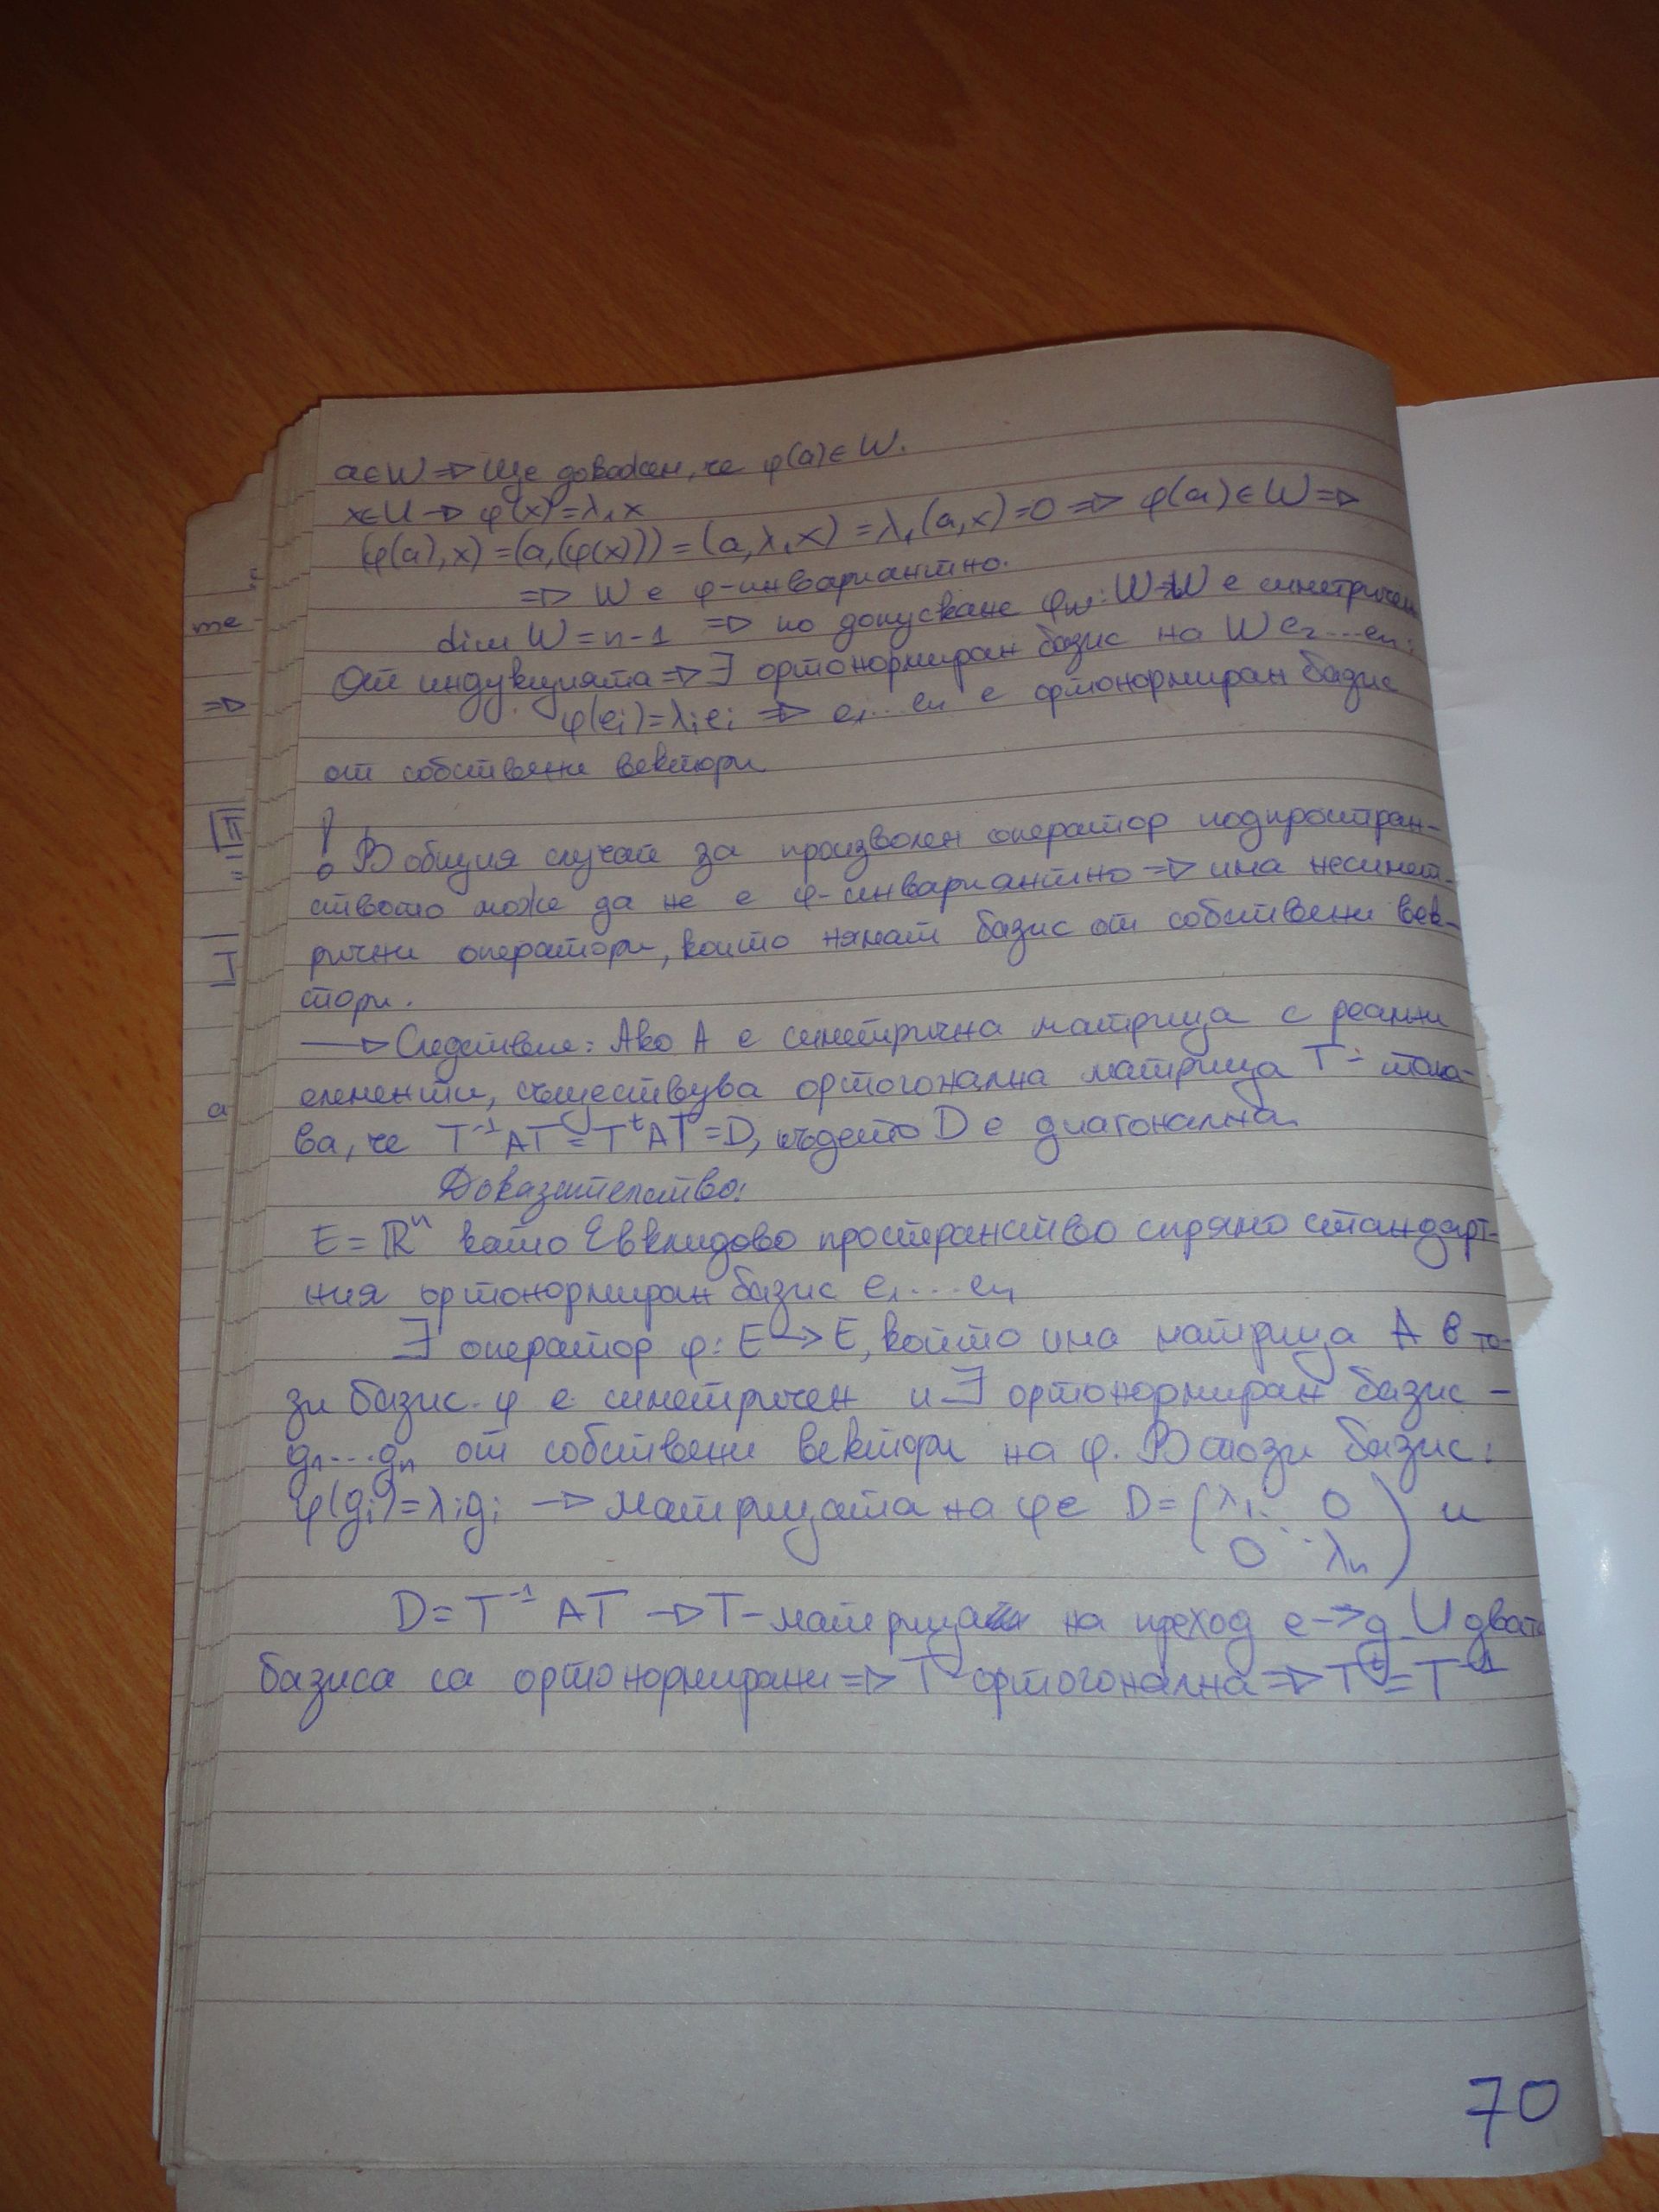 a∈W ⇒ Ще докажем, че φ(a)∈W.
x∈U → φ(x)=λ₁x
(φ(a),x)=(a,(φ(x)))=(a,λ₁x)=λ₁(a,x)=0 ⇒ φ(a)∈W ⇒
⇒ W е φ-инвариантно.
dim W=n-1 ⇒ по допускане φ_W: W→W е симетричен
От индукцията ⇒ ∃ ортонормиран базис на W e₂...eₙ:
φ(eᵢ)=λᵢeᵢ ⇒ e₁...eₙ е ортонормиран базис
от собствени вектори
! В общия случай за произволен оператор подпростран-
ството може да не е φ-инвариантно ⇒ има несимет-
рични оператори, които нямат базис от собствени век-
тори.
→ Следствие: Ако A е симетрична матрица с реални
елементи, съществува ортогонална матрица T - така-
ва, че T⁻¹AT=TᵗAT=D, където D е диагонална
Доказателство:
E=ℝⁿ като Евклидово пространство спрямо стандарт-
ния ортонормиран базис e₁...eₙ
∃ оператор φ: E→E, който има матрица A в то-
зи базис. φ е симетричен и ∃ ортонормиран базис -
g₁...gₙ от собствени вектори на φ. В този базис:
φ(gᵢ)=λᵢgᵢ → матрицата на φ е D=(λ₁ 0 ) и
0 λₙ
D=T⁻¹AT → T-матрица на преход e→g. И двата
базиса са ортонормирани ⇒ T ортогонална ⇒ Tᵗ=T⁻¹
70
те
⇒
II
I
a